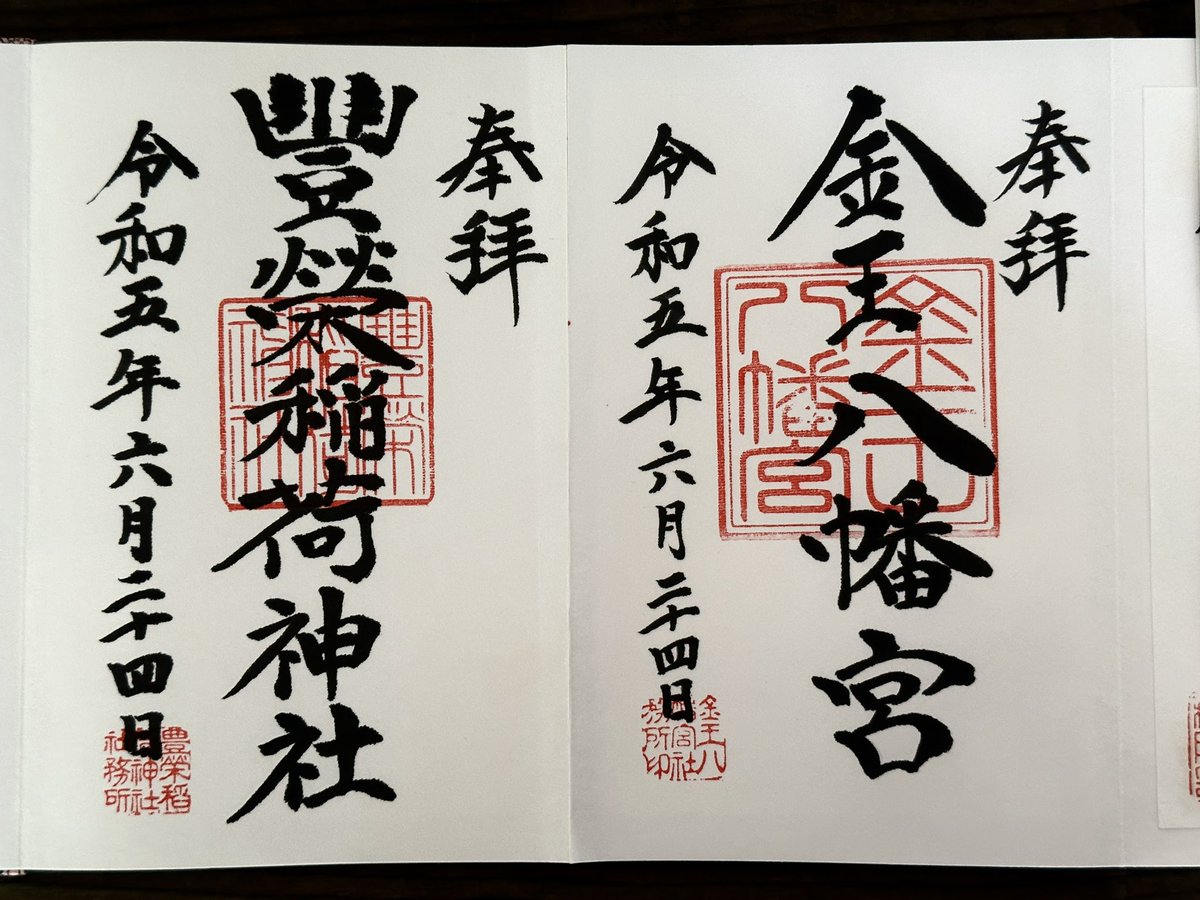 奉拝
金王八幡宮
令和五年六月二十四日
金王八幡宮
金王八幡宮社務所印
奉拝
豐榮稲荷神社
令和五年六月二十四日
豊栄稲荷神社
豊栄稲荷神社社務所